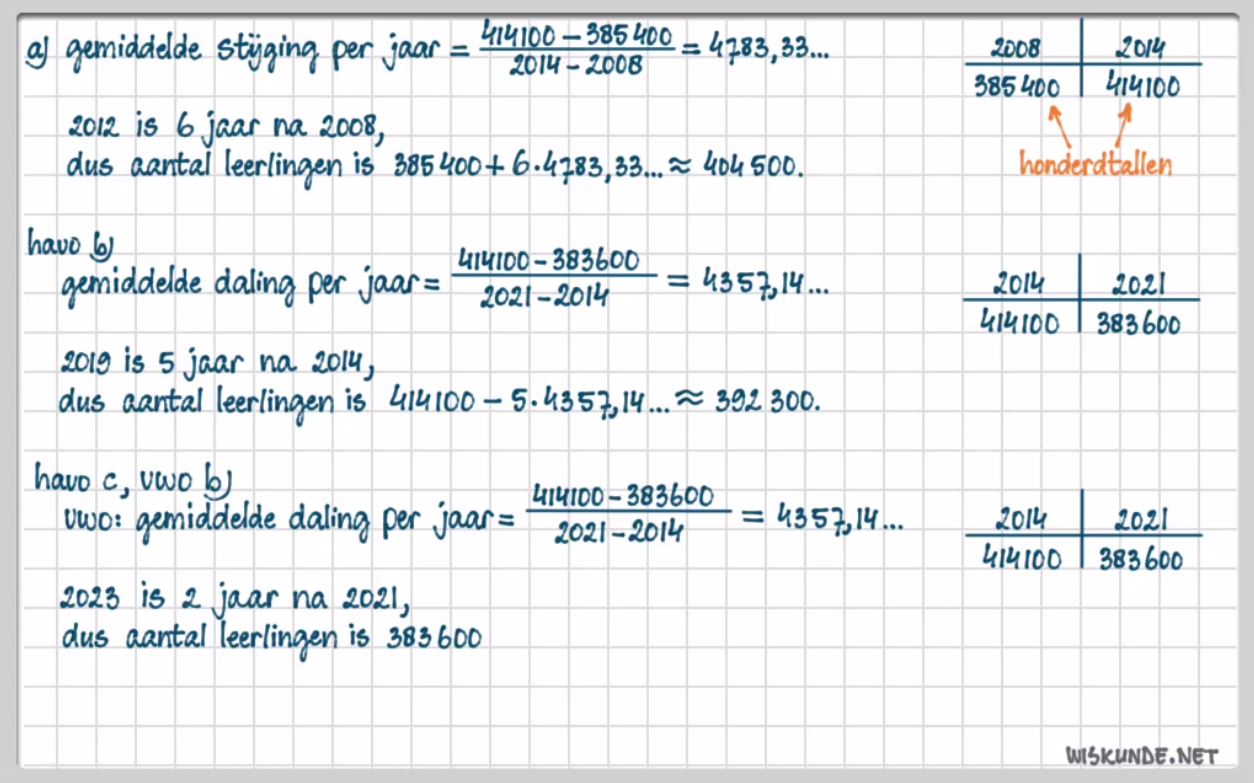 a) gemiddelde stijging per jaar = (414100 − 385400)/(2014 − 2008) = 4783,33...
2008 | 2014
385400 | 414100
honderdtallen
2012 is 6 jaar na 2008,
dus aantal leerlingen is 385400 + 6·4783,33... ≈ 404500.
havo b)
gemiddelde daling per jaar = (414100 − 383600)/(2021 − 2014) = 4357,14...
2014 | 2021
414100 | 383600
2019 is 5 jaar na 2014,
dus aantal leerlingen is 414100 − 5·4357,14... ≈ 392300.
havo c, vwo b)
vwo: gemiddelde daling per jaar = (414100 − 383600)/(2021 − 2014) = 4357,14...
2014 | 2021
414100 | 383600
2023 is 2 jaar na 2021,
dus aantal leerlingen is 383600
WISKUNDE.NET